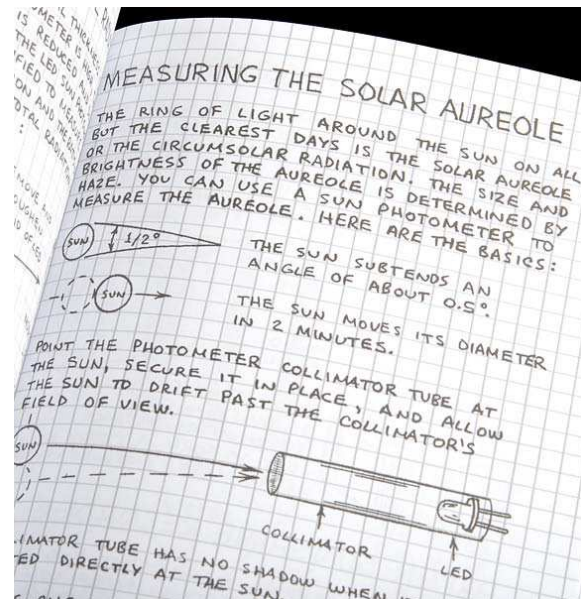 THICKNESS
OMETER IS
IS REDUCED
THE LED SUN
FIED TO MEASU
ON AND THE
OTAL RADIAT
:
MOVE AND
MEASURING THE SOLAR AUREOLE
THE RING OF LIGHT AROUND THE SUN ON ALL
BUT THE CLEAREST DAYS IS THE SOLAR AUREOLE
OR THE CIRCUMSOLAR RADIATION. THE SIZE AND
BRIGHTNESS OF THE AUREOLE IS DETERMINED BY
HAZE. YOU CAN USE A SUN PHOTOMETER TO
MEASURE THE AUREOLE. HERE ARE THE BASICS:
SUN 1/2°
THE SUN SUBTENDS AN
ANGLE OF ABOUT 0.5°.
SUN
THE SUN MOVES ITS DIAMETER
IN 2 MINUTES.
POINT THE PHOTOMETER COLLIMATOR TUBE AT
THE SUN, SECURE IT IN PLACE, AND ALLOW
THE SUN TO DRIFT PAST THE COLLIMATOR'S
FIELD OF VIEW.
SUN
COLLIMATOR
LED
LIMATOR TUBE HAS NO SHADOW WHEN
TED DIRECTLY AT THE SUN.